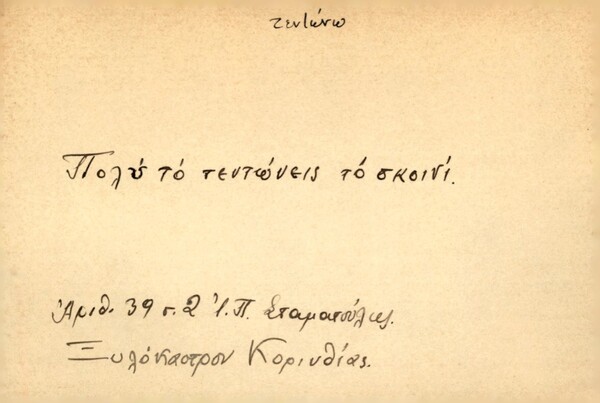 τεντώνω
Πολύ τό τεντώνεις τό σκοινί.
Ἀριθ. 39 σ. 2 Ἰ. Π. Σταματούλης.
Ξυλόκαστρον Κορινθίας.